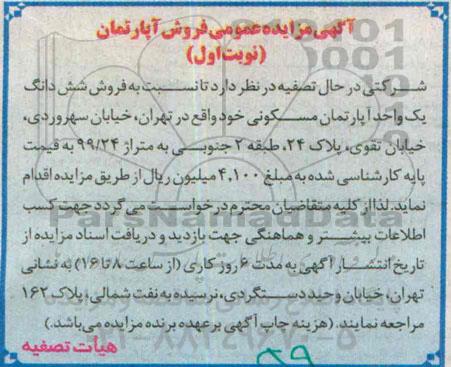 آگهی مزایده عمومی فروش آپارتمان
(نوبت اول)
شرکتی در حال تصفیه در نظر دارد تا نسبت به فروش شش دانگ
یک واحد آپارتمان مسکونی خود واقع در تهران، خیابان سهروردی،
خیابان تقوی، پلاک ۲۴، طبقه ۲ جنوبی به متراژ ۹۹/۲۴ به قیمت
پایه کارشناسی شده به مبلغ ۴,۱۰۰ میلیون ریال از طریق مزایده اقدام
نماید. لذا از کلیه متقاضیان محترم درخواست می گردد جهت کسب
اطلاعات بیشتر و هماهنگی جهت بازدید و دریافت اسناد مزایده از
تاریخ انتشار آگهی به مدت ۶ روز کاری (از ساعت ۸ تا ۱۶) به نشانی
تهران، خیابان وحید دستگردی، نرسیده به نفت شمالی، پلاک ۱۶۲
مراجعه نمایند. (هزینه چاپ آگهی بر عهده برنده مزایده می باشد.)
هیأت تصفیه
ParsNamadData
۹۹